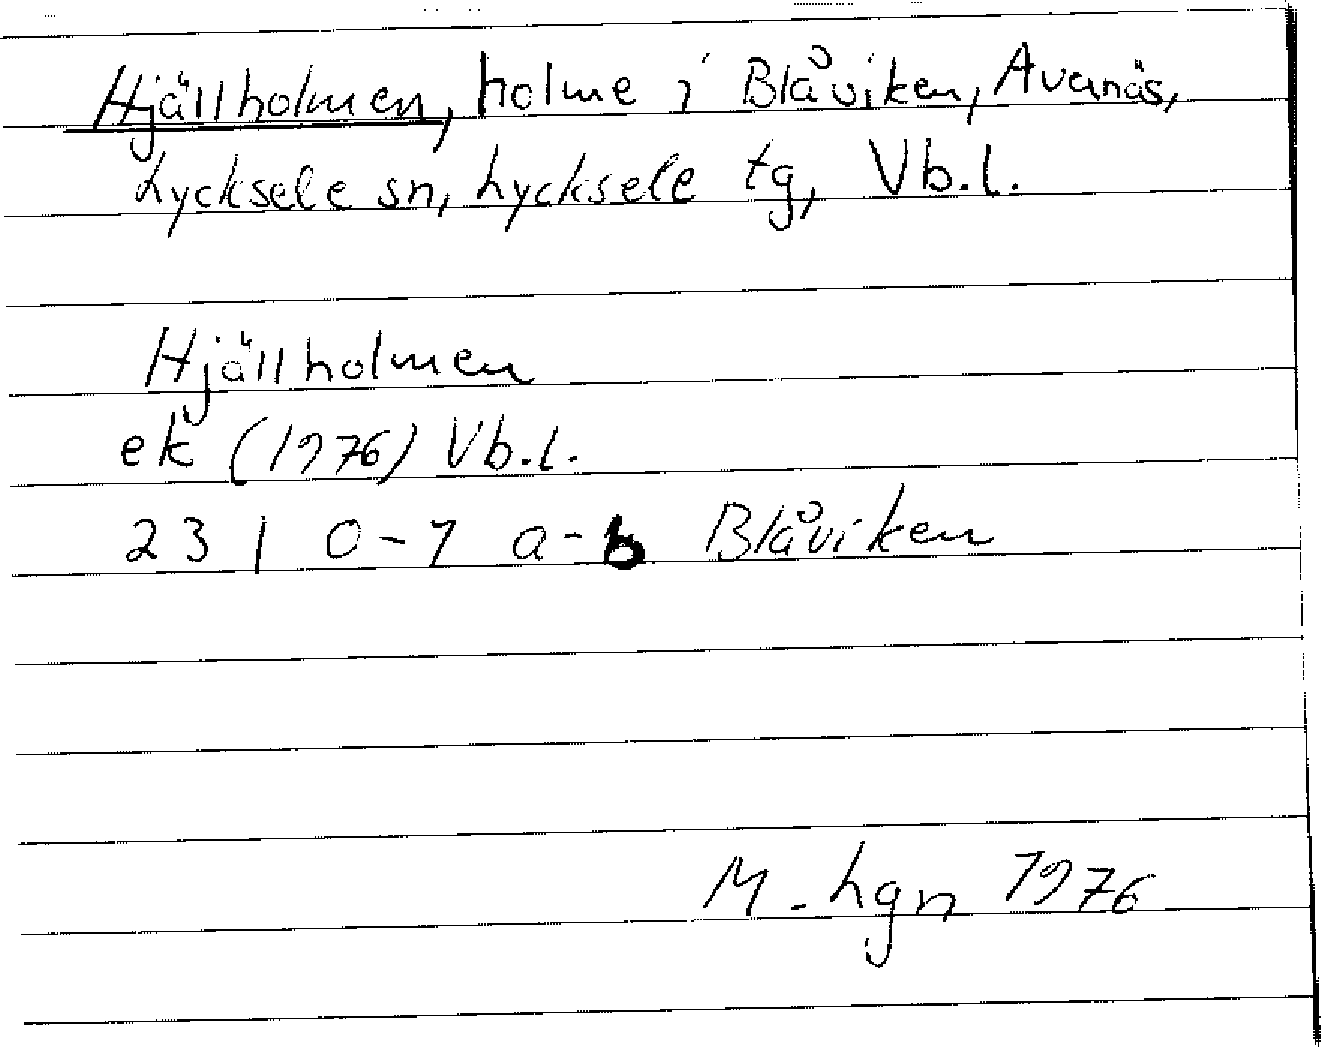 Hjällholmen, holme i Blåviken, Avanäs,
Lycksele sn, Lycksele tg, Vb.l.
Hjällholmen
ek (1976) Vb.l.
23 I 0-1 a-b Blåviken
M. Lgn 1976